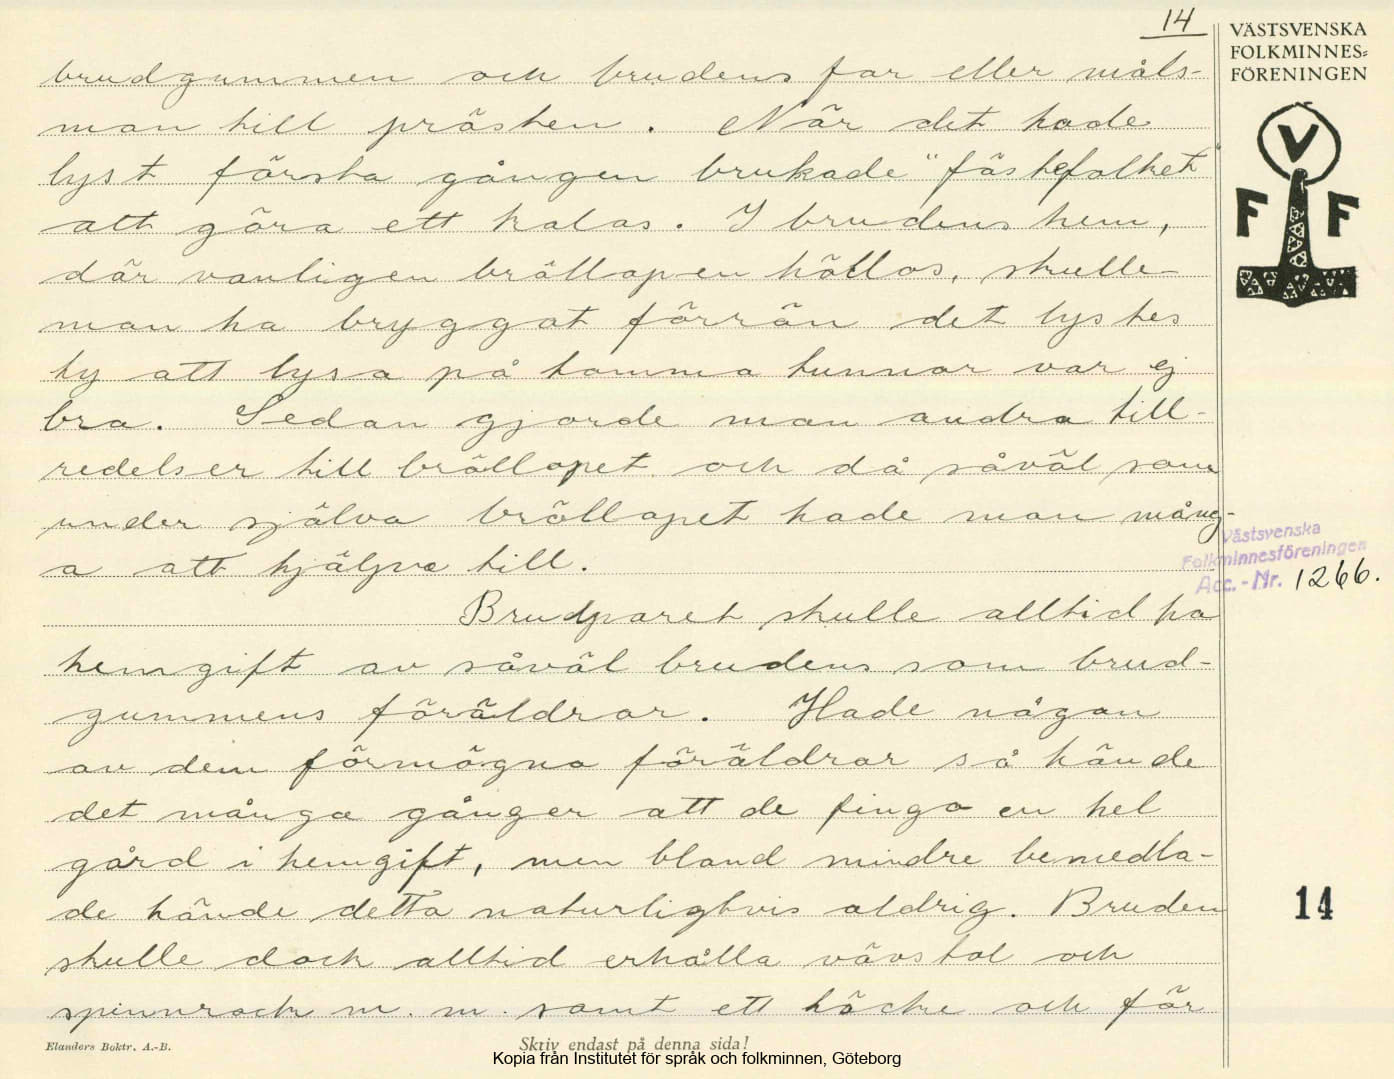 14
VÄSTSVENSKA
FOLKMINNES-
FÖRENINGEN
V
F F
brudgummen och brudens far eller måls-
man till prästen. När det hade
lyst första gången brukade "fästefolket
att göra ett kalas. I brudens hem,
där vanligen bröllopen höllos, skulle
man ha bryggat förrän det lystes
ty att lysa på tomma tunnor var ej
bra. Sedan gjorde man andra till-
redelser till bröllopet och då såväl som
under själva bröllopet hade man mång-
a att hjälpa till.
Västsvenska
Folkminnesföreningen
Acc.-Nr. 1266.
Brudparet skulle alltid ha
hemgift av såväl brudens som brud-
gummens föräldrar. Hade någon
av dem förmögna föräldrar så hände
det många gånger att de fingo en hel
gård i hemgift, men bland mindre bemedla-
de hände detta naturligtvis aldrig. Bruden
14
skulle dock alltid erhålla vävstol och
spinnrock m. m. samt ett höcke och får
Elanders Boktr. A.-B.
Skriv endast på denna sida!
Kopia från Institutet för språk och folkminnen, Göteborg